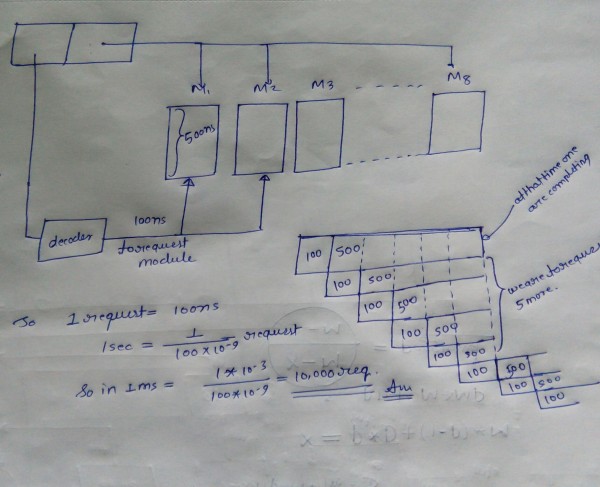 M1 M2 M3 M8
500ns
100ns
decoder
to request
module
at that time one
are completing
100 500
100 500
100 500
100 500
100 500
100 500
100 500
100
we are to reques
5 more.
So 1 request = 100ns
1sec = 1 / 100 × 10^-9 request
So in 1ms = 1 * 10^-3 / 100 * 10^-9 = 10,000 req. Ans